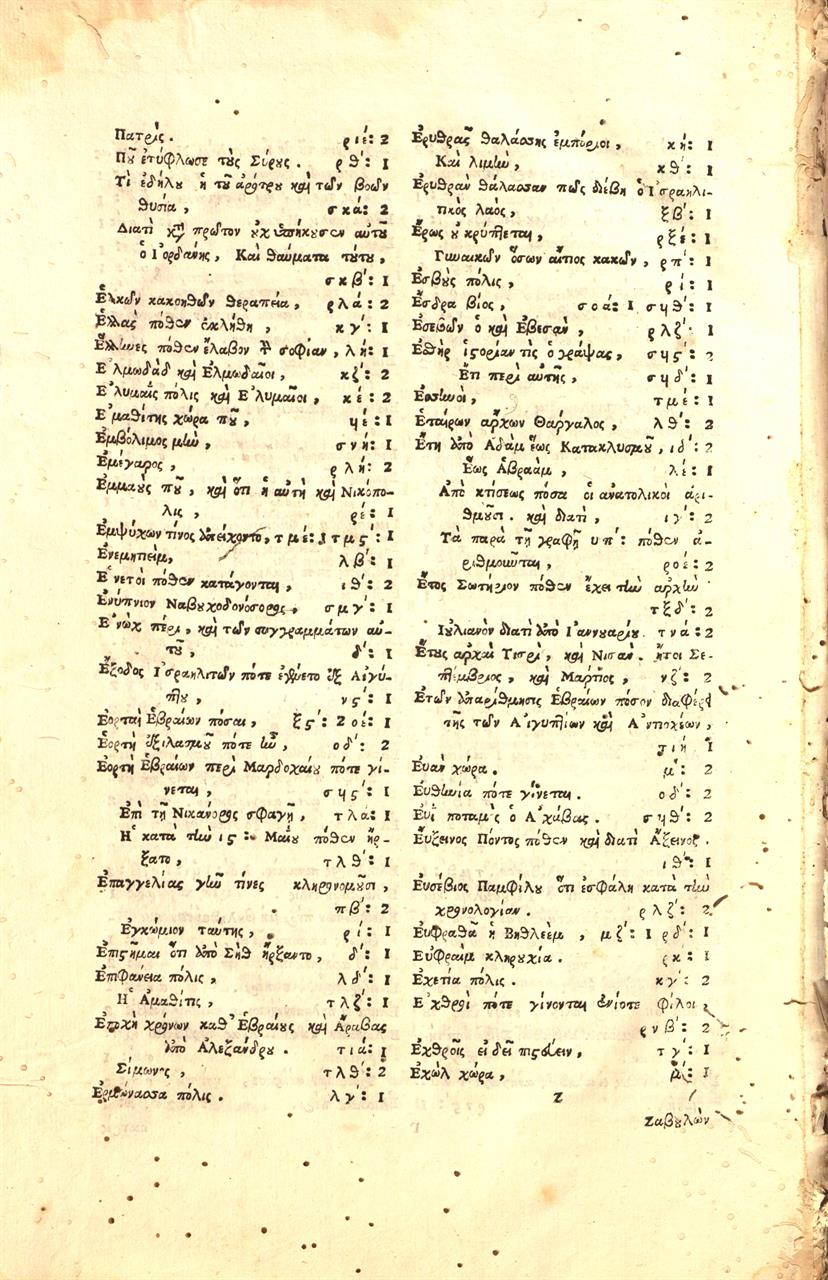 Πατρίς. ριέ: 2
Ποῦ ἐτύφλωσε τοὺς Σύρους. ρθ΄: 1
Τί ἐδήλου ἡ τοῦ ἀρότρου καὶ τῶν βοῶν
θυσία, σκά: 2
Διατί κτ̀ πρῶτον οὐκ ὑπήκουσεν αὐτοῦ
ὁ Ἰορδάνης, Καὶ θαύματα τούτου,
σκβ΄: 1
Ἑλκῶν κακοηθῶν θεραπεία, ρλά: 2
Ἑλλὰς πόθεν ἐκλήθη, κγ΄: 1
Ἕλληνες πόθεν ἔλαβον τ̀ σοφίαν, λή: 1
Ἐλμωδὰδ καὶ Ἐλμωδαῖοι, κζ΄: 2
Ἐλυμαῒς πόλις καὶ Ἐλυμαῖοι, κέ: 2
Ἐμαθίτης χώρα ποῦ, ϥέ: 1
Ἐμβόλιμος μὴν, σνή: 1
Ἐμέγαρος, ρλή: 2
Ἐμμαοὺς ποῦ, καὶ ὅτι ἡ αὐτὴ καὶ Νικόπο-
λις, ρέ: 1
Ἐμψύχων τίνος ἀπείχοντο, τμέ: 1 τμς΄: 1
Ἐνεμητιεὶμ, λβ΄: 1
Ἐνετοὶ πόθεν κατάγονται, ιθ΄: 2
Ἐνύπνιον Ναβουχοδονόσορος, σμγ΄: 1
Ἐνὼχ πέρι, καὶ τῶν συγγραμμάτων αὐ-
τοῦ, δ΄: 1
Ἔξοδος Ἰσραηλιτῶν πότε ἐγένετο ἐξ Αἰγύ-
πτου, νς΄: 1
Ἑορταὶ Ἑβραίων πόσαι, ξς΄: 2 οέ: 1
Ἑορτὴ ἐξιλασμοῦ πότε ἦν, οδ΄: 2
Ἑορτὴ Ἑβραίων περὶ Μαρδοχαίου πότε γί-
νεται, σϥς΄: 1
Ἐπὶ τῇ Νικάνορος σφαγῇ, τλά: 1
Ἡ κατὰ τὴν ις: Μαΐου πόθεν ἤρ-
ξατο, τλθ΄: 1
Ἐπαγγελίας γῆν τίνες κληρονομοῦσι,
πβ΄: 2
Ἐγκώμιον ταύτης, ρί: 1
Ἐπιστῆμαι ὅτι ἀπὸ Σὴθ ἤρξαντο, δ΄: 1
Ἐπιφάνεια πόλις, λδ΄: 1
Ἡ Ἀμαθίτις, τλζ΄: 1
Ἐποχὴ χρόνων καθ᾽ Ἑβραίους καὶ Ἄραβας
ἀπὸ Ἀλεξάνδρου. τιά: 1
Σίμωνος, τλθ΄: 2
Ἑρμώνασσα πόλις. λγ΄: 1
Ἐρυθρᾶς θαλάσσης ἐμπόριοι, κή: 1
Καὶ λιμὴν, κθ΄: 1
Ἐρυθρὰν θάλασσαν πῶς διέβη ὁ Ἰσραηλι-
τικὸς λαὸς, ξβ΄: 1
Ἔρως οὐ κρύπτεται, ρξέ: 1
Γυναικῶν ὅσων αἴτιος κακῶν, ρπ΄: 1
Ἐσβοὺς πόλις, ρί: 1
Ἔσδρα βίος, σοά: 1 σϥθ΄: 1
Ἐσεβὼν ὁ καὶ Ἐβεσὰν, ρλζ΄: 1
Ἐσθὴρ ἱστορίαν τίς ὁ γράψας, σϥς΄: 2
Ἔτι περὶ αὐτῆς, σϥδ΄: 1
Ἐσσηνοὶ, τμέ: 1
Ἑταίρων ἄρχων Θάργαλος, λθ΄: 2
Ἔτη ἀπὸ Ἀδὰμ ἕως Κατακλυσμοῦ, ιδ΄: 2
Ἕως Ἀβραὰμ, λέ: 1
Ἀπὸ κτίσεως πόσα οἱ ἀνατολικοὶ ἀρι-
θμοῦσι. καὶ διατί, ιγ΄: 2
Τὰ παρὰ τῇ γραφῇ υπ΄: πόθεν ἀ-
ριθμοῦνται, ροέ: 2
Ἔτος Σωτήριον πόθεν ἔχει τὴν ἀρχὴν
τξδ΄: 2
Ἰουλιανὸν διατί ἀπὸ Ἰαννουαρίου. τνά: 2
Ἔτους ἀρχαὶ Τισρὶ, καὶ Νισὰν. ἤτοι Σε-
πτέμβριος, καὶ Μάρτιος, νζ΄: 2
Ἐτῶν ἀπαρίθμησις Ἑβραίων πόσον διαφέρει
τῆς τῶν Αἰγυπτίων καὶ Ἀντιοχέων,
τιή 1
Εὐὰν χώρα. μ΄: 2
Εὐθηνία πότε γίνεται. οδ΄: 2
Εὐῒ ποταμὸς ὁ Ἀχάβας. σϥθ΄: 2
Εὔξεινος Πόντος πόθεν καὶ διατί Ἄξεινος.
ιθ΄: 1
Εὐσέβιος Παμφίλου ὅτι ἐσφάλη κατὰ τὴν
χρονολογίαν. ρλζ΄: 2
Εὐφραθᾶ ἡ Βηθλεὲμ, μζ΄: 1 ρδ΄: 1
Εὐφραὶμ κληρουχία. ρκ: 1
Ἐχετία πόλις. κγ΄: 2
Ἐχθροὶ πότε γίνονται ἐνίοτε φίλοι,
ρνβ΄: 2
Ἐχθροῖς εἰ δεῖ πιστεύειν, τγ΄: 1
Ἐχὼλ χώρα, μ΄: 1
Ζ
Ζαβουλὼν